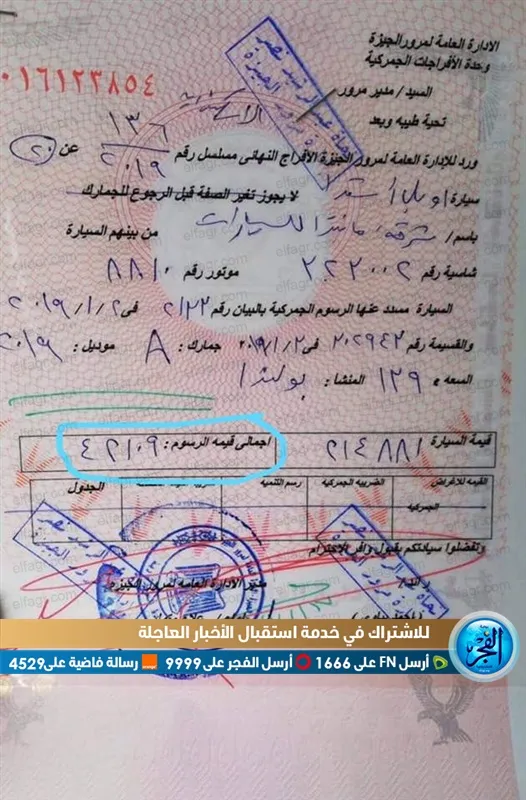 الادارة العامة لمرور الجيزة
وحدة الأفراجات الجمركية
٠١٦١٢٣٨٥٤
السيد / مدير مرور
تحية طيبه وبعد
ورد للإدارة العامة لمرور الجيزة الأفراج النهائى مسلسل رقم ١٣٦ / ٢٠١٩ عن (٢٠)
سيارة / اوبل استرا لا يجوز تغير الصفة قبل الرجوع للجمارك
باسم / شركة / مانترا للسيارات من بينهم السيارة
شاسية رقم ٢٢٢٠٠٢ موتور رقم ٨٨١٠
السيارة مسدد عنها الرسوم الجمركية بالبيان رقم ٢١٢٢ فى ٢٠١٩/١/٢
والقسيمة رقم ٢٠٢٩٤٢ فى ٢٠١٩/١/٢ جمارك : A موديل : ٢٠١٩
السعه ١٣٩ المنشا : بولندا
قيمة السيارة ٢١٤٨٨١ اجمالى قيمه الرسوم : ٤٢١٠٩
القيمة للأغراض الجمركية الضريبه الجمركيه رسم التنميه الجدول
وتفضلوا سيادتكم بقبول وافر الاحترام
مدير الادارة العامه لمرور الجيزة
للاشتراك في خدمة استقبال الأخبار العاجلة
أرسل FN على 1666 أرسل الفجر على 9999 رسالة فاضية على 4529
الفجر
elfagr.com